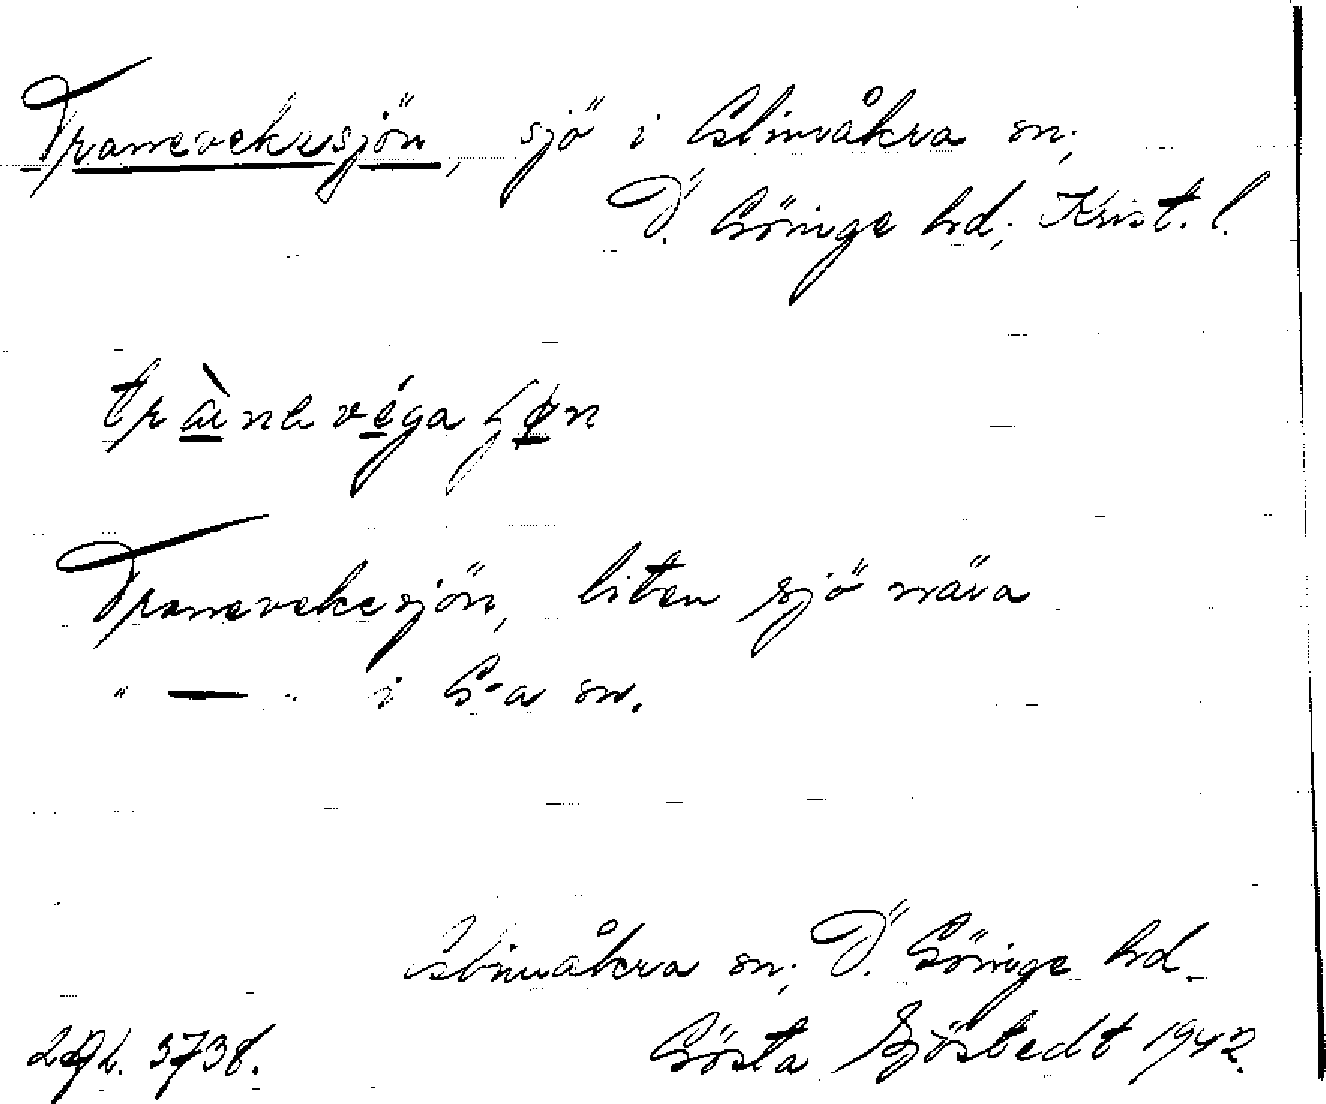 Tranevekesjön, sjö i Glimåkra sn,
Ö. Göinge hd, Krist. l.
Tranevekesjön, liten sjö nära
" — " i G-a sn.
Glimåkra sn, Ö. Göinge hd.
3738. Gösta Sjöstedt 1942.